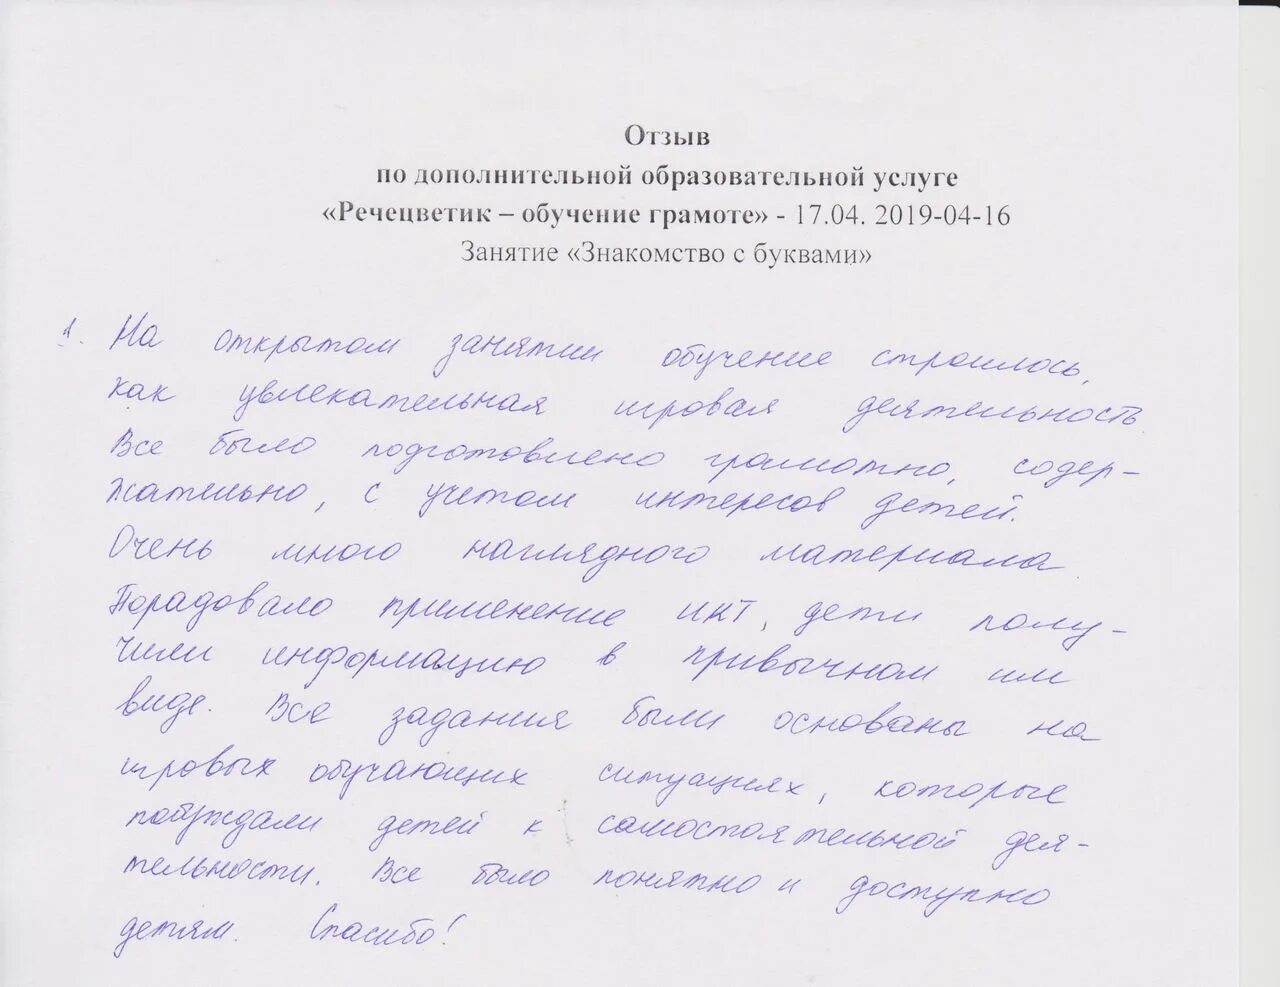 Отзыв
по дополнительной образовательной услуге
«Речецветик – обучение грамоте» - 17.04. 2019-04-16
Занятие «Знакомство с буквами»
1. На открытом занятии обучение строилось,
как увлекательная игровая деятельность.
Все было подготовлено грамотно, содер-
жательно, с учетом интересов детей.
Очень много наглядного материала.
Порадовало применение ИКТ, дети полу-
чили информацию в привычном им
виде. Все задания были основаны на
игровых обучающих ситуациях, которые
побуждали детей к самостоятельной дея-
тельности. Все было понятно и доступно
детям. Спасибо!